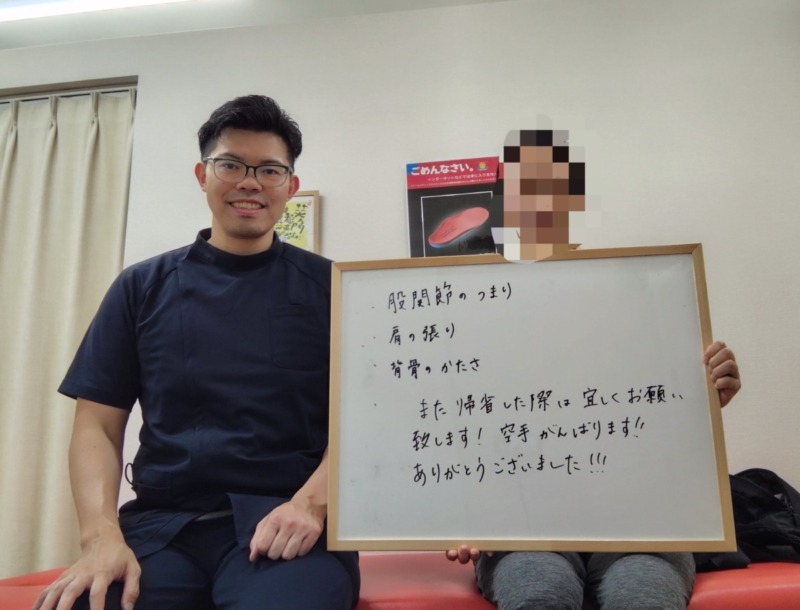 ごめんなさい。
・股関節のつまり
・肩の張り
・背骨のかたさ
・
また帰省した際は宜しくお願い
致します! 空手がんばります!!
ありがとうございました!!!